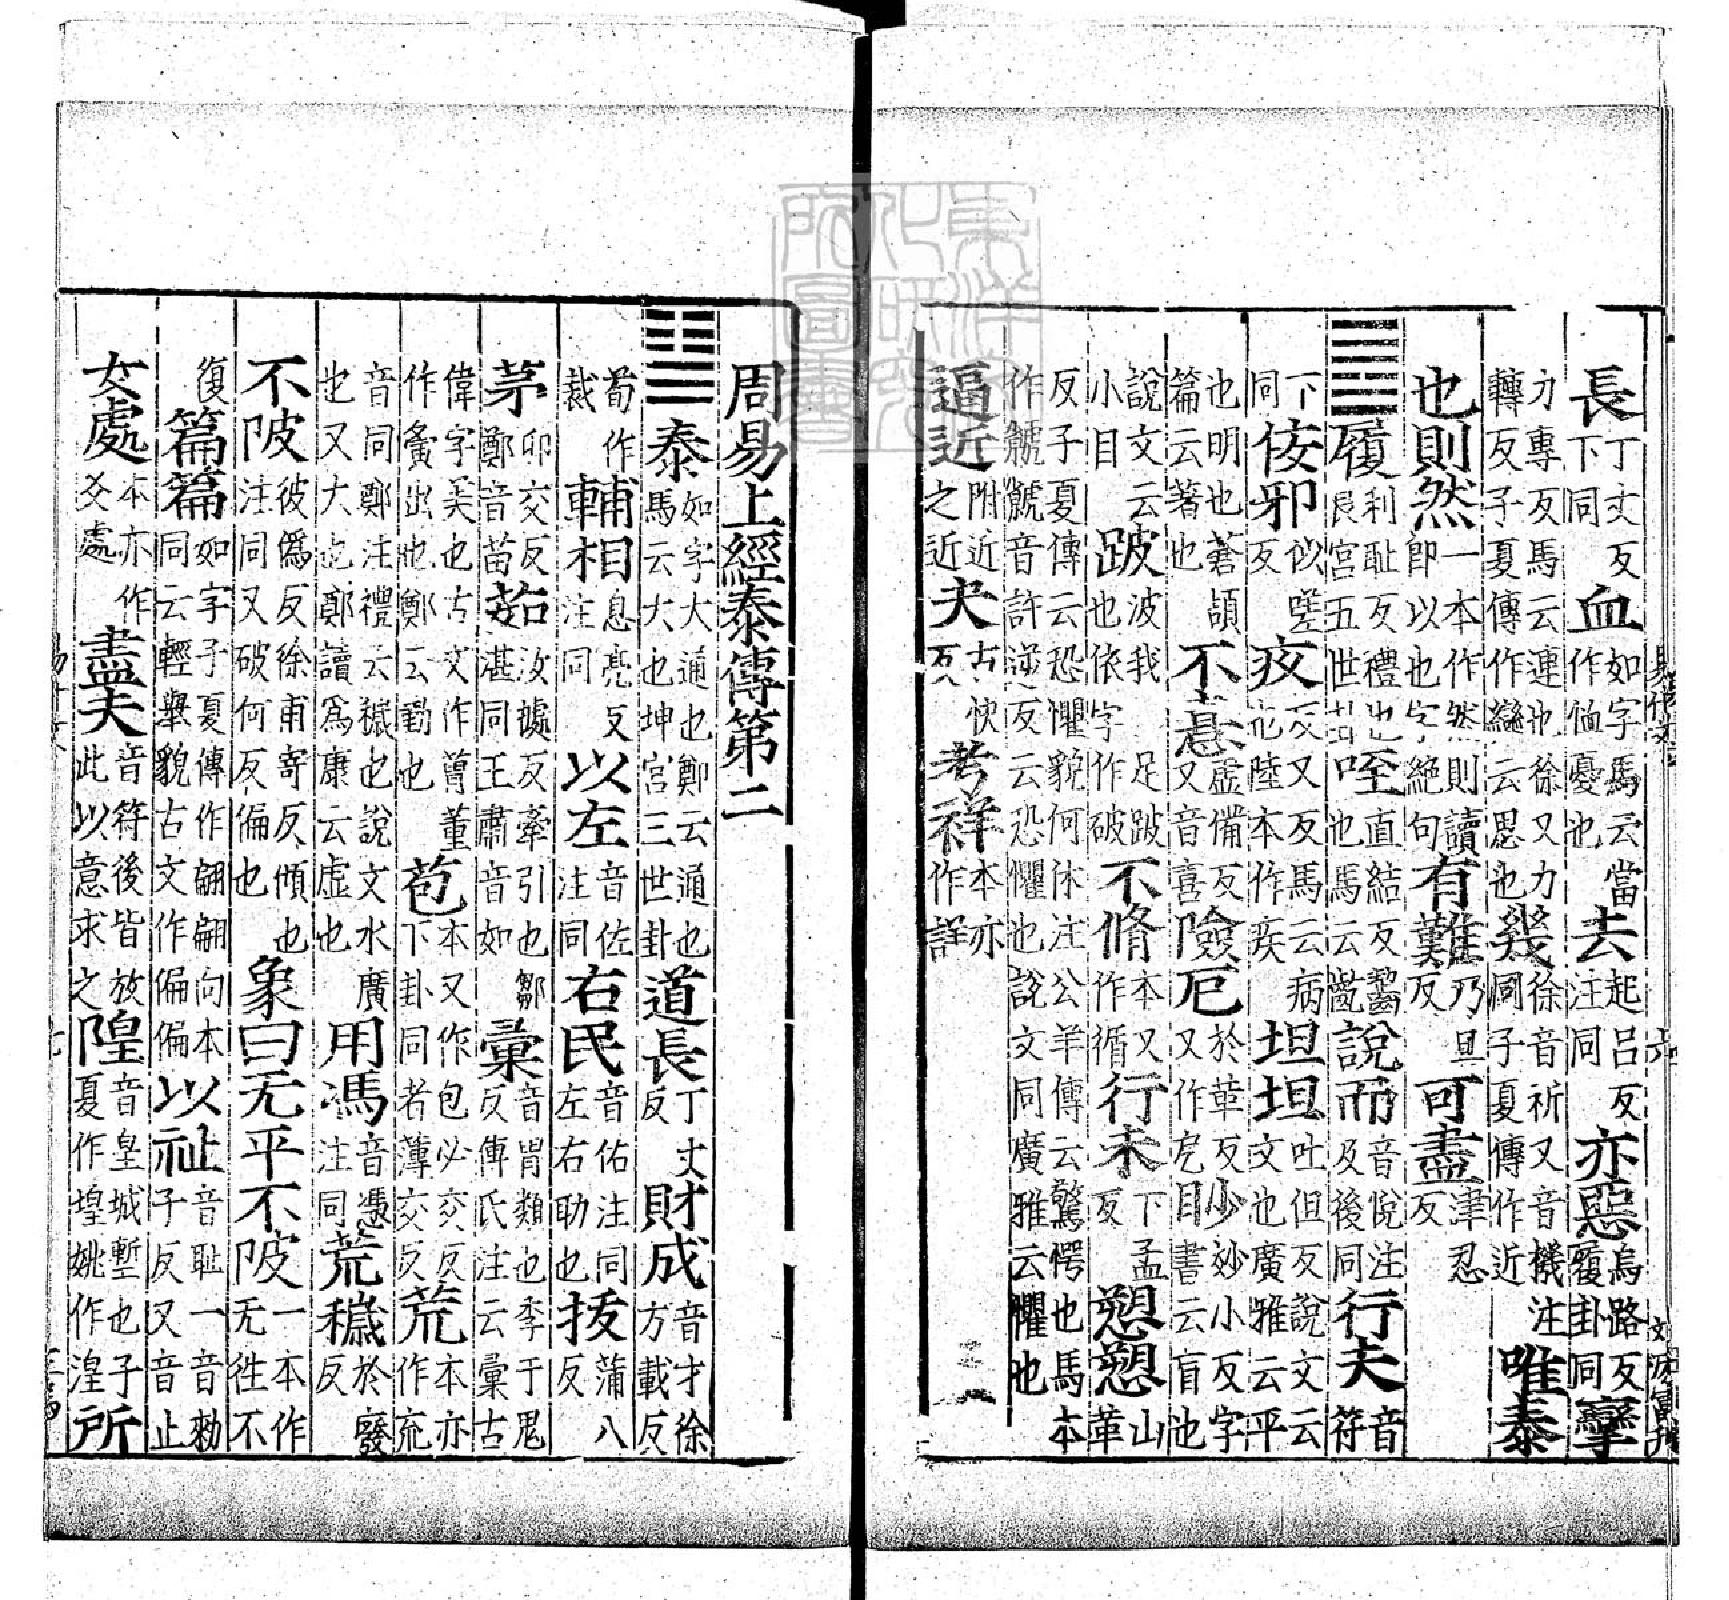 長丁丈反下同血如字馬云當作恤憂也去起呂反注同亦惡烏路反履卦同攣
力專反馬云連也徐又力轉反子夏傳作戀云思也幾徐音祈又音機注同子夏傳作近唯泰
也則然一本作然則讀即以也字絕句有難乃旦反可盡津忍反
䷉履利恥反禮也艮宮五世卦咥直結反齧也馬云齕說而音悅注及後同行夫音符
下同佞邪似嗟反疚久又反馬云病也陸本作疾坦坦吐但反說文云文也廣雅云平
也明也蒼頡篇云著也不憙虛備反又音喜險厄於革反又作戹眇妙小反字書云盲也
說文云小目跛波我反足跛也依字作破不脩本又作循行未下孟反愬愬山革
反子夏傳云恐懼貌何休注公羊傳云驚愕也馬本作虩虩音許逆反云恐懼也說文同廣雅云懼也
逼近附近之近夬古快反考祥本亦作詳
周易上經泰傳第二
䷊泰如字大通也鄭云通也馬云大也坤宮三世卦道長丁丈反財成音才徐方載反
荀作裁輔相息亮反注同以左音佐注同右民音佑注同左右助也拔蒲八反
茅卯交反鄭音苗茹汝據反牽引也鄒湛同王肅音如彙音胃類也李于鬼反傅氏注云彙古
偉字美也古文作𦳢董作夤出也鄭云勤也苞本又作包必交反下卦同者薄交反荒本亦作巟
音同鄭注禮云穢也說文水廣也又大也鄭讀為康云虛也用馮音憑注同荒穢於廢反
不陂彼偽反徐甫寄反傾也注同又破何反偏也象曰无平不陂一本作无往不
復篇篇如字子夏傳作翩翩向本同云輕舉貌古文作偏偏以祉音恥一音勑子反又音止
女處本亦作爻處盡夫音符後皆放此以意求之隍音皇城塹也子夏作堭姚作湟所